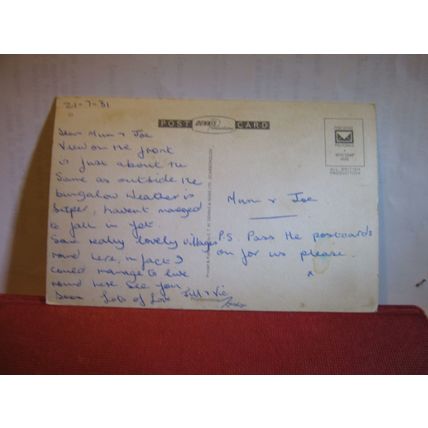 21-7-81
POST CARD
Dear Mum & Joe
View on the front
is just about the
same as outside the
bungalow Weather is
super, havent managed
to fall in yet.
Some really lovely villages
round here, in fact I
could manage to live
round here See you
Soon Lots of Love Jill & Vic
Mum & Joe
P.S. Pass the postcards
on for us please.
x
ALL BRITISH